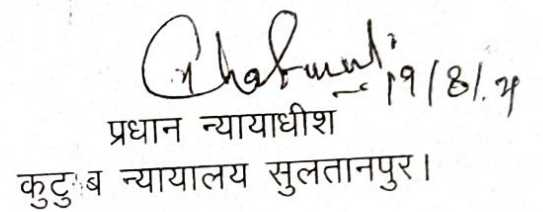 19/8/.24
प्रधान न्यायाधीश
कुटुंब न्यायालय सुलतानपुर।